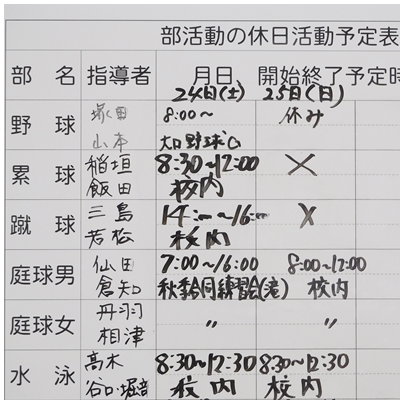 部活動の休日活動予定表
部 名 指導者 月日 開始終了予定時
24日(土) 25日(日)
野 球 塚田 8:00〜 休み
山本
累 球 稲垣 8:30〜12:00 ×
飯田 校内
蹴 球 三島 14:00〜16:00 ×
若松 校内
庭球男 仙田 7:00〜16:00 8:00〜12:00
倉知 校内
庭球女 丹羽 〃 〃
相津
水 泳 高木 8:30〜12:30 8:30〜12:30
谷口・堀部 校内 校内